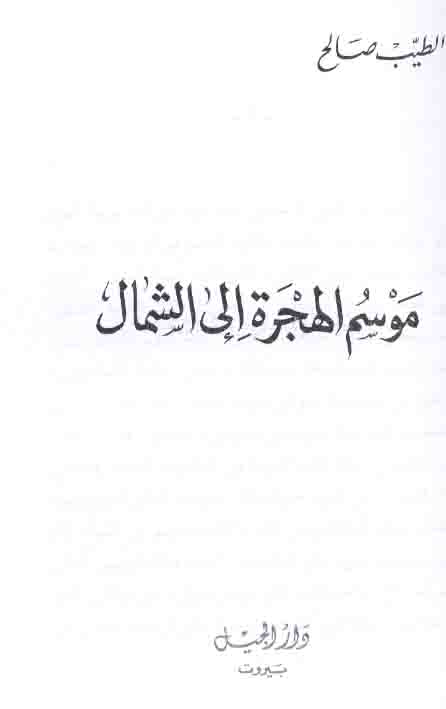 الطيّب صَالح
مَوْسِم الهِجْرَة إلى الشمَال
دَار الجيل
بَيروت